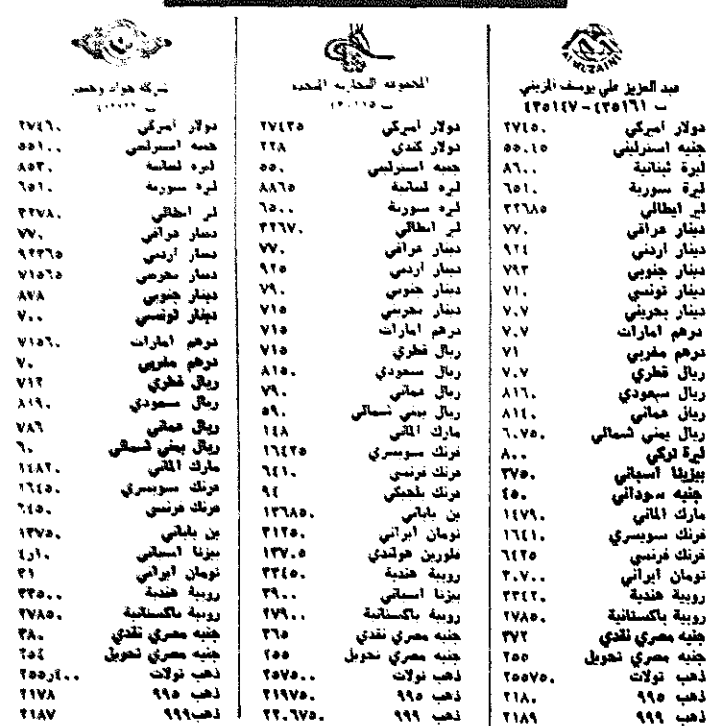 عبد العزيز علي يوسف المزيني
ت ٤٣٥١٦١ - ٤٣٥١٤٧
دولار اميركي ٢٧٤٥٠
جنيه استرليني ٥٥٠٤٥
ليرة لبنانية ٨٦٠٠
ليرة سورية ٦٥١٠
لير ايطالي ٢٢٦٨٥
دينار عراقي ٧٧٠
دينار اردني ٩٢٤
دينار جنوبي ٧٩٣
دينار تونسي ٧١٠
دينار بحريني ٧٠٧
درهم امارات ٧٠٧
درهم مغربي ٧١
ريال قطري ٧٠٧
ريال سعودي ٨١٦٠
ريال عماني ٨١٤٠
ريال يمني شمالي ٦٠٧٥٠
ليرة تركي ٨٠٠
بيزيتا اسباني ٣٧٥٠
جنيه سوداني ٤٥٠
مارك الماني ١٤٧٩٠
فرنك سويسري ١٦٤١٠
فرنك فرنسي ٦٤٢٥
تومان ايراني ٣٠٧٠٠
روبية هندية ٢٣٤٢٠
روبية باكستانية ٢٧٨٥٠
جنيه مصري نقدي ٣٧٢
جنيه مصري تحويل ٢٥٥
ذهب تولات ٢٥٥٧٥٠
ذهب ٩٩٥ ٢١٨٠
ذهب ٩٩٩ ٢١٨٩
المجموعه التجاريه المتحده
دولار اميركي ٢٧٤٣٥
دولار كندي ٢٢٨
جنيه استرليني ٥٥٠
ليره لبنانية ٨٨٦٥
ليره سورية ٦٥٠٠
لير ايطالي ٢٢٦٧٠
دينار عراقي ٧٧٠
دينار اردني ٩٢٥
دينار جنوبي ٧٩٠
دينار بحريني ٧١٥
درهم امارات ٧١٥
ريال قطري ٧١٥
ريال سعودي ٨١٥٠
ريال عماني ٧٩٠
ريال يمني شمالي ٥٩٠
مارك الماني ١٤٨
فرنك سويسري ١٦٤٢٥
فرنك فرنسي ٦٤١٠
فرنك بلجيكي ٩٤
ين ياباني ١٣٦٨٥٠
تومان ايراني ٣١٢٥٠
فلورين هولندي ١٣٧٠٥
روبية هندية ٢٣٤٥٠
بيزتا اسباني ٣٩٠٠
روبية باكستانية ٢٧٩٠٠
جنيه مصري نقدي ٣٦٥
جنيه مصري تحويل ٢٥٥
ذهب تولات ٢٥٧٥٠٠
ذهب ٩٩٥ ٢١٩٧٥٠
ذهب ٩٩٩ ٢٢٠٦٧٥٠
شركة جواد وحيدر
دولار اميركي ٢٧٤٦٠
جنيه استرليني ٥٥١٠٠
ليره لبنانية ٨٥٣٠
ليره سورية ٦٥١٠
لير ايطالي ٢٢٧٨٠
دينار عراقي ٧٧٠
دينار اردني ٩٢٣٦٥
دينار بحريني ٧١٥٦٥
دينار جنوبي ٨٧٨
دينار تونسي ٧٠٠
درهم امارات ٧١٥٦٠
درهم مغربي ٧٠
ريال قطري ٧١٢
ريال سعودي ٨١٩٠
ريال عماني ٧٨٦
ريال يمني شمالي ٦٠
مارك الماني ١٤٨٢٠
فرنك سويسري ١٦٤٥٠
فرنك فرنسي ٦٤٥٠
ين ياباني ١٣٧٥٠
بيزتا اسباني ٤ر١٠
تومان ايراني ٣١
روبية هندية ٢٣٥٠٠
روبية باكستانية ٢٧٨٥٠
جنيه مصري نقدي ٣٨٠
جنيه مصري تحويل ٢٥٤
ذهب تولات ٢٥٥ر٤٠٠
ذهب ٩٩٥ ٢١٧٨
ذهب ٩٩٩ ٢١٨٧